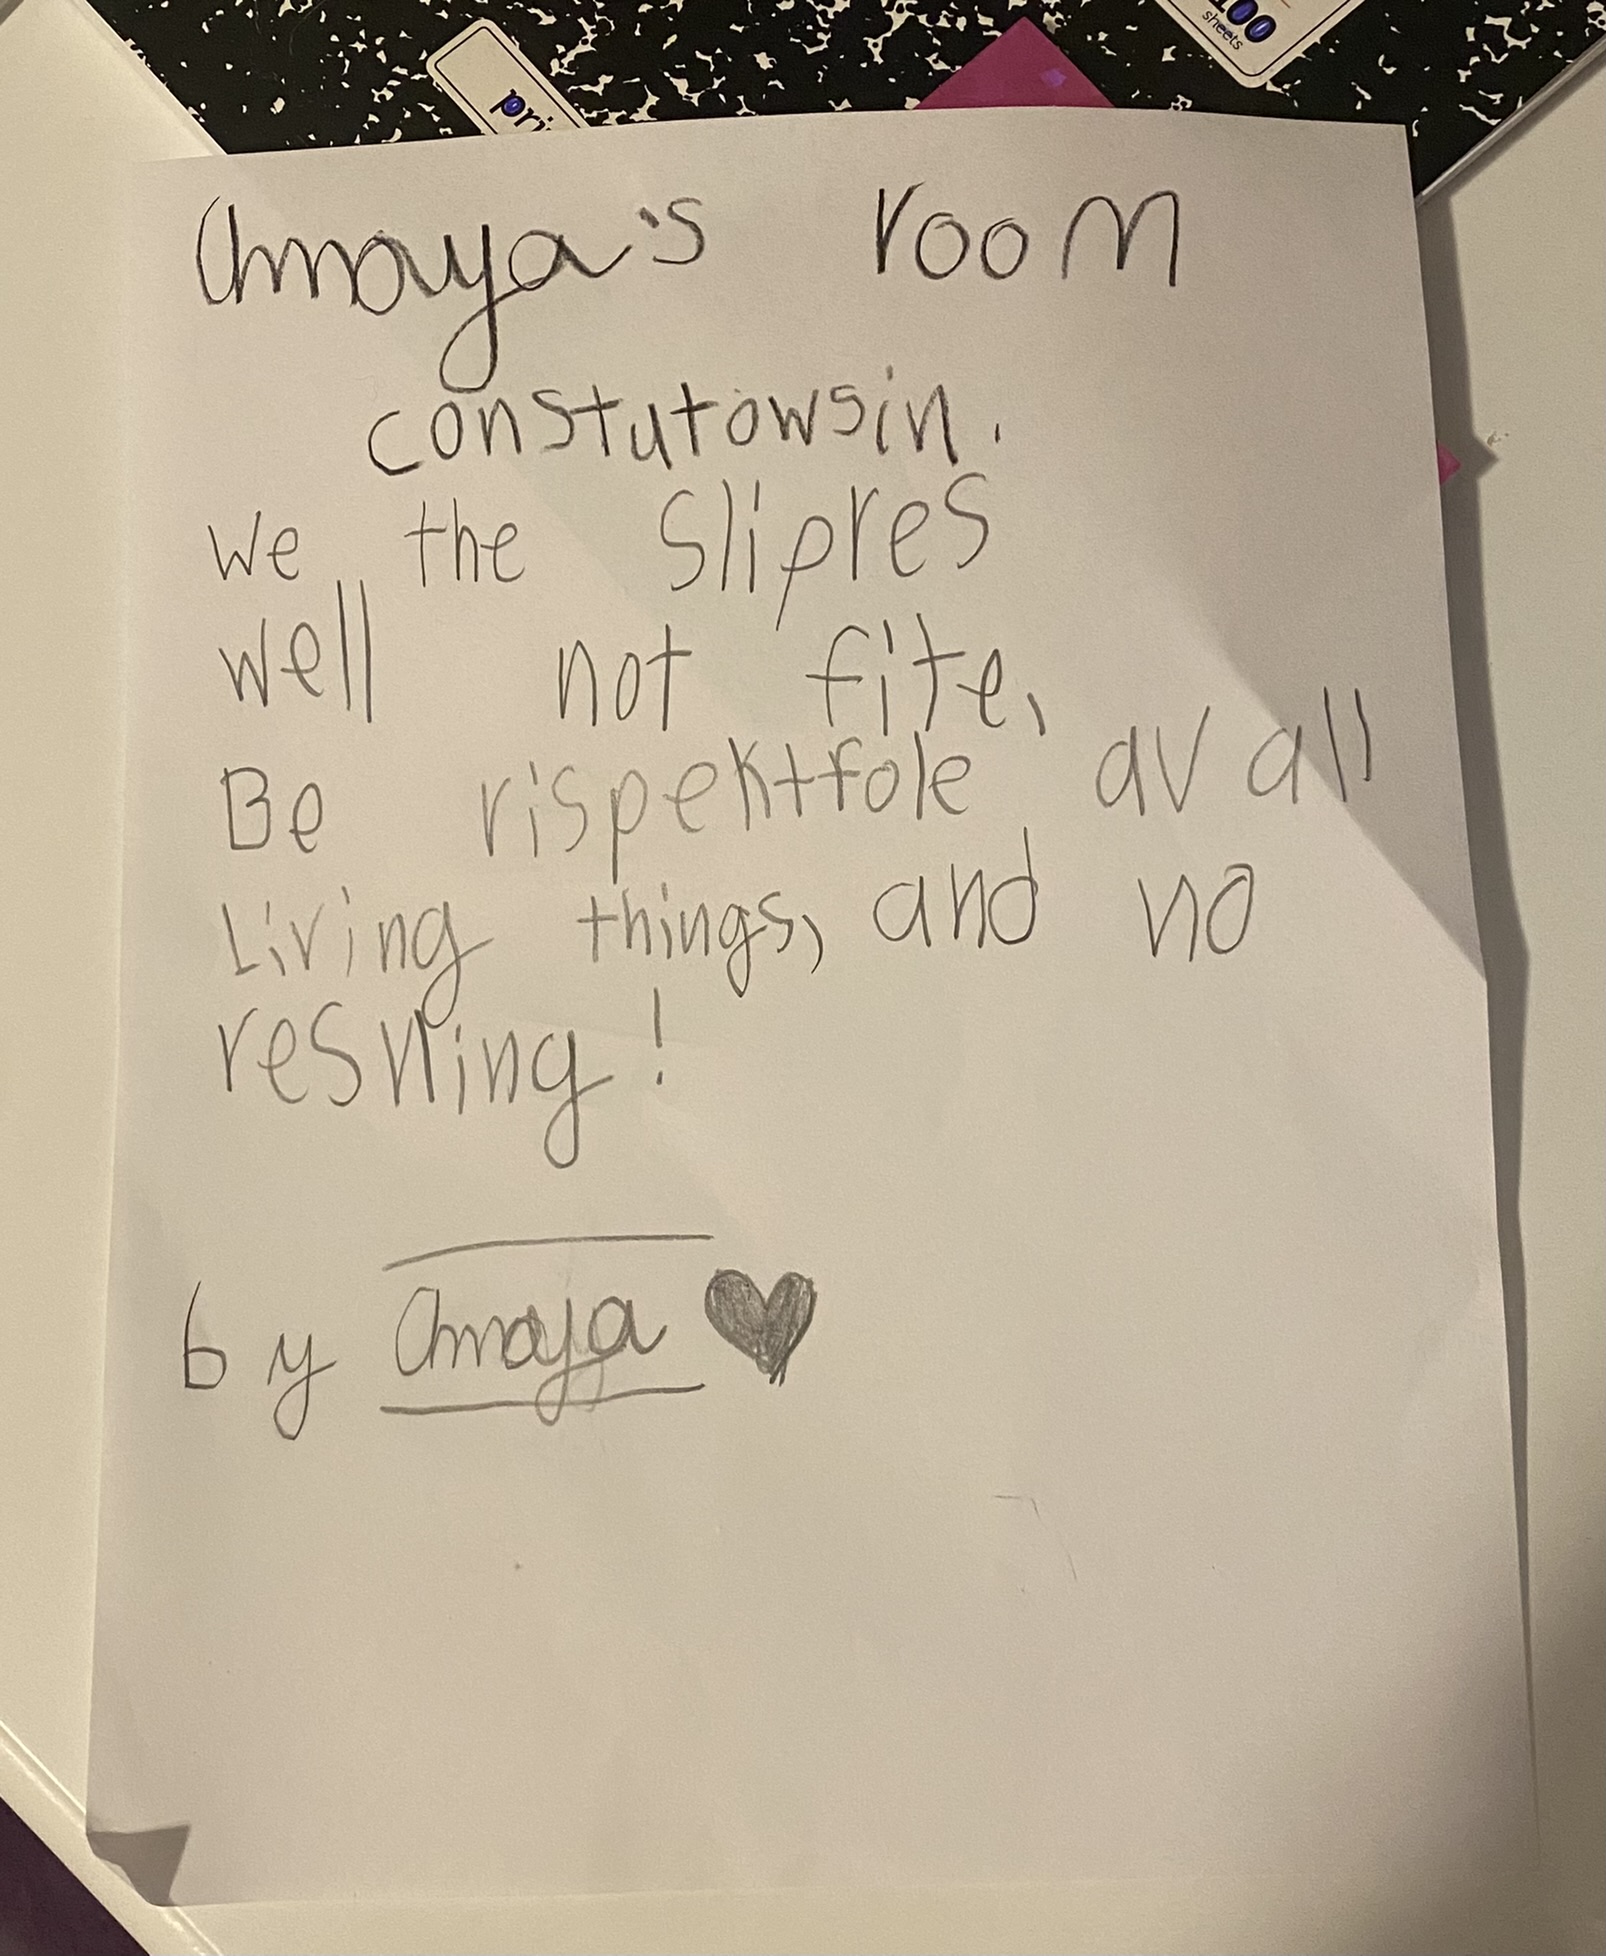 pri
100
sheets
Amaya's room
constutowsin.
we the Slipres
well not fite,
Be rispektfole av all
Living things, and no
resning!
by Amaya